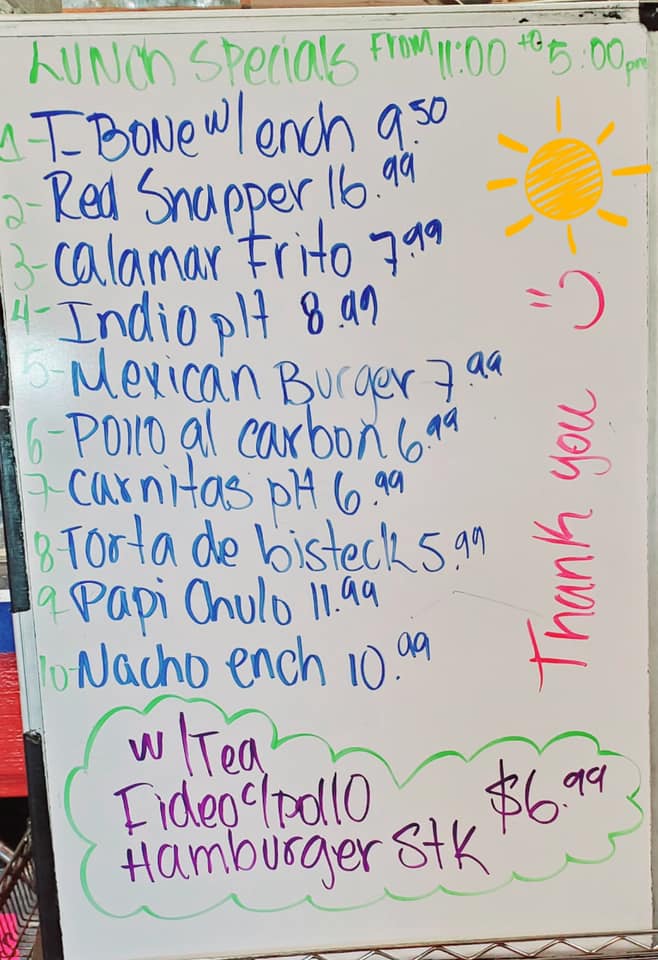 Lunch Specials From 11:00 to 5:00 pm
1- T-Bone w/ench 9.50
2- Red Snapper 16.99
3- Calamar Frito 7.99
4- Indio plt 8.99
5- Mexican Burger 7.99
6- Pollo al carbon 6.99
7- Carnitas plt 6.99
8- Torta de bisteck 5.99
9- Papi Chulo 11.99
10- Nacho ench 10.99
w/Tea
Fideo c/pollo $6.99
Hamburger Stk
Thank you :)